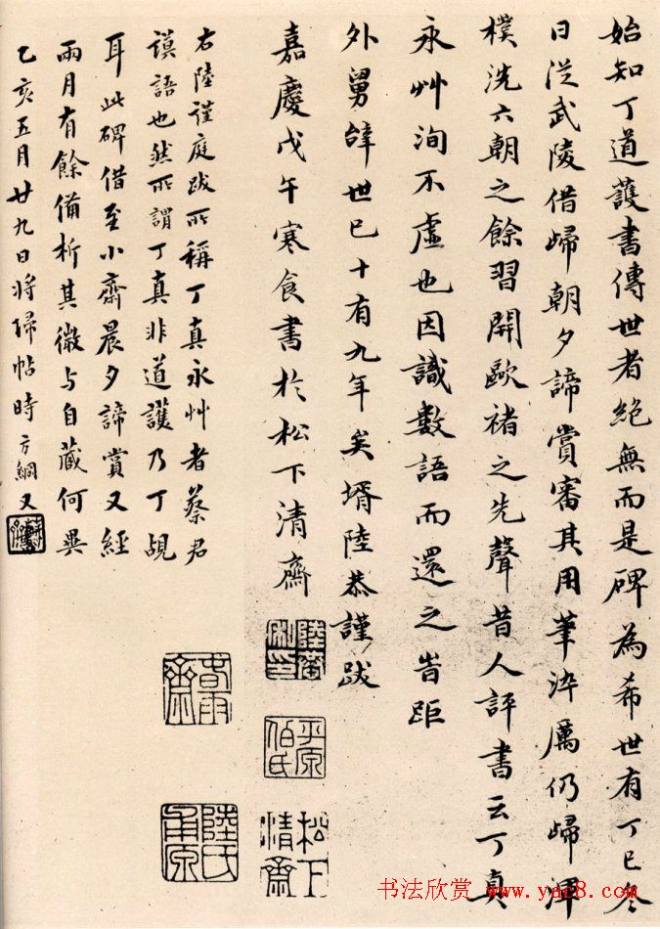 始知丁道護書傳世者絶無而是碑為希世有丁巳冬
日從武陵借歸朝夕諦賞審其用筆淬厲仍歸渾
樸洗六朝之餘習開歐褚之先聲昔人評書云丁真
永艸洵不虛也因識數語而還之旹距
外舅世已十有九年矣壻陸恭謹跋
嘉慶戊午寒食書於松下清齋
平原伯氏
松下清齋
右陸謹庭跋所稱丁真永艸者蔡君
謨語也然所謂丁真非道護乃丁覘
耳此碑借至小齋晨夕諦賞又經
兩月有餘備析其微与自藏何異
乙亥五月廿九日將歸帖時方綱又
春雨齋
书法欣赏 www.yac8.com